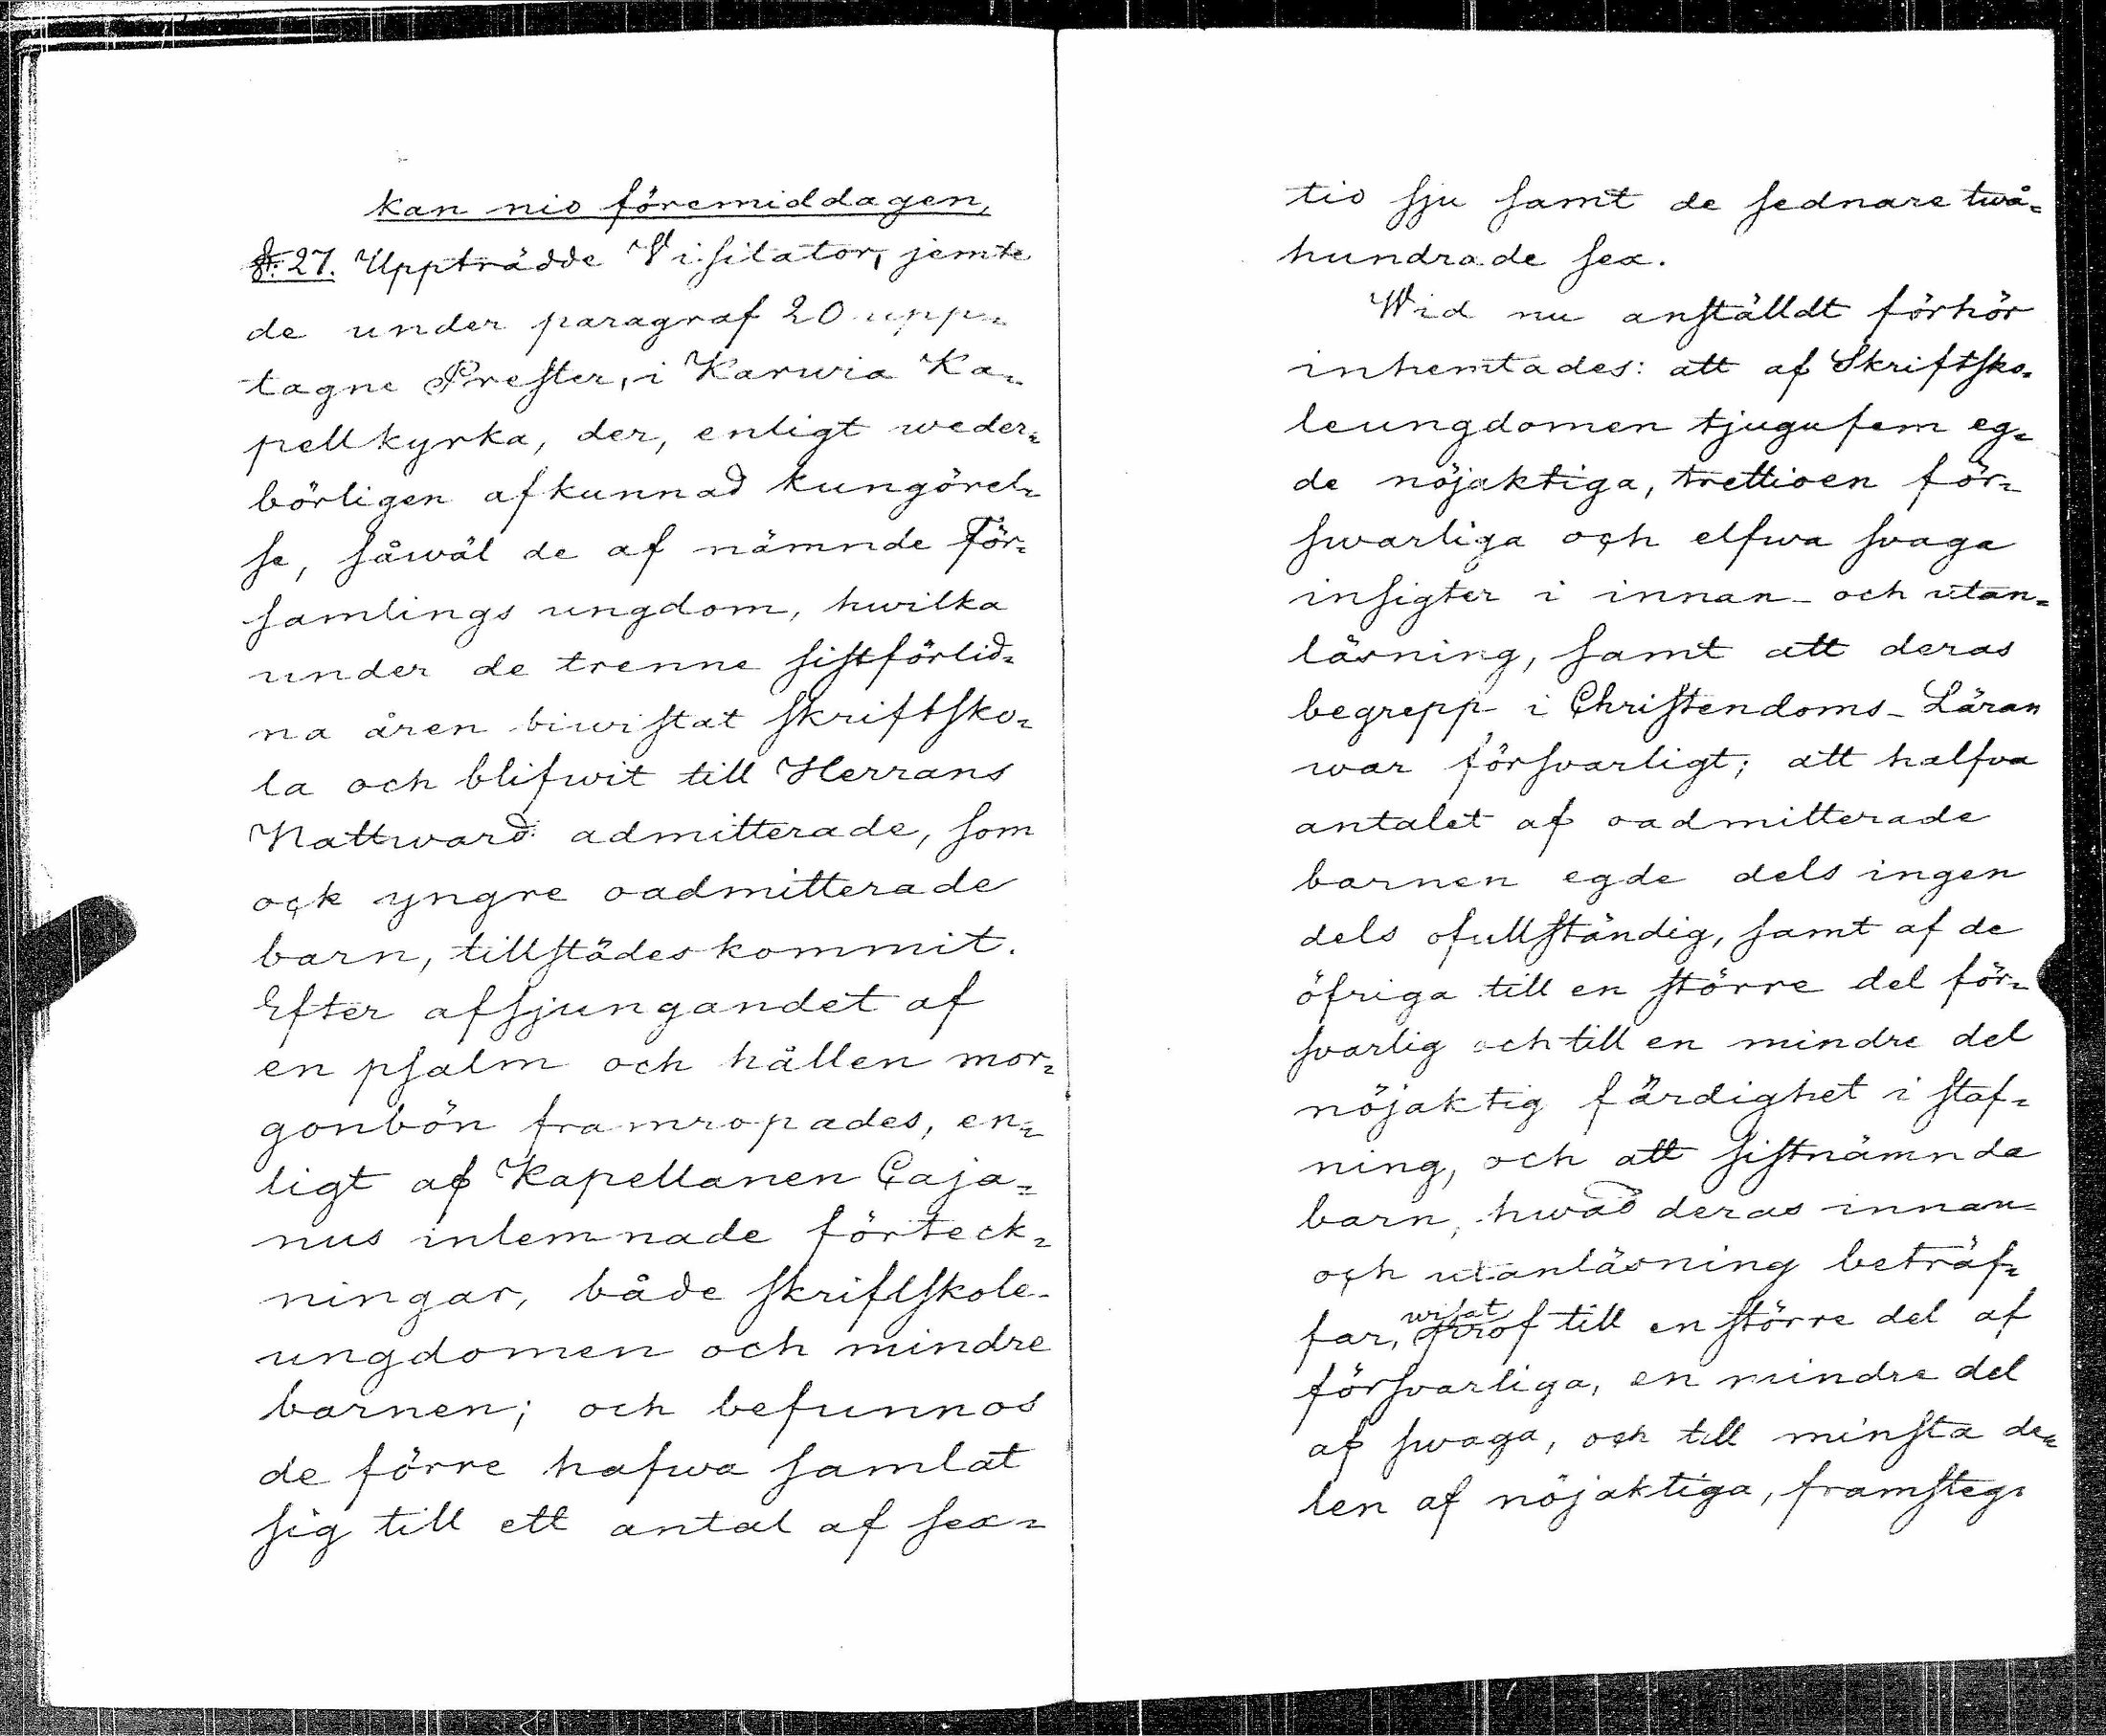 kan nio föremiddagen,
§. 27. Uppträdde Visitator, jemte
de under paragraf 20 upp-
tagne Prester, i Karwia Ka-
pellkyrka, der, enligt weder-
börligen afkunnad kungörel-
se, såwäl de af nämnde För-
samlings ungdom, hwilka
under de trenne sistförlid-
na åren biwistat skriftsko-
la och blifwit till Herrans
Nattward admitterade, som
ock yngre oadmitterade
barn, tillstädeskommit.
Efter afsjungandet af
en psalm och hållen mor-
gonbön framropades, en-
ligt af Kapellanen Caja-
nus inlemnade förteck-
ningar, både skriftskole-
ungdomen och mindre
barnen; och befunnos
de förre hafwa samlat
sig till ett antal af sex-
tio sju samt de sednare twå-
hundrade sex.
Wid nu anställdt förhör
inhemtades: att af Skriftsko-
leungdomen tjugufem eg-
de nöjaktiga, trettioen för-
swarliga och elfwa svaga
insigter i innan- och utan-
läsning, samt att deras
begrepp i Christendoms-Läran
war försvarligt; att halfva
antalet af oadmitterade
barnen egde dels ingen
dels ofullständig, samt af de
öfriga till en större del för-
svarlig och till en mindre del
nöjaktig färdighet i staf-
ning, och att sistnämnda
barn, hwad deras innan-
och utanläsning beträf-
far, wisat prof till en större del af
försvarliga, en mindre del
af swaga, och till minsta de-
len af nöjaktiga, framsteg.